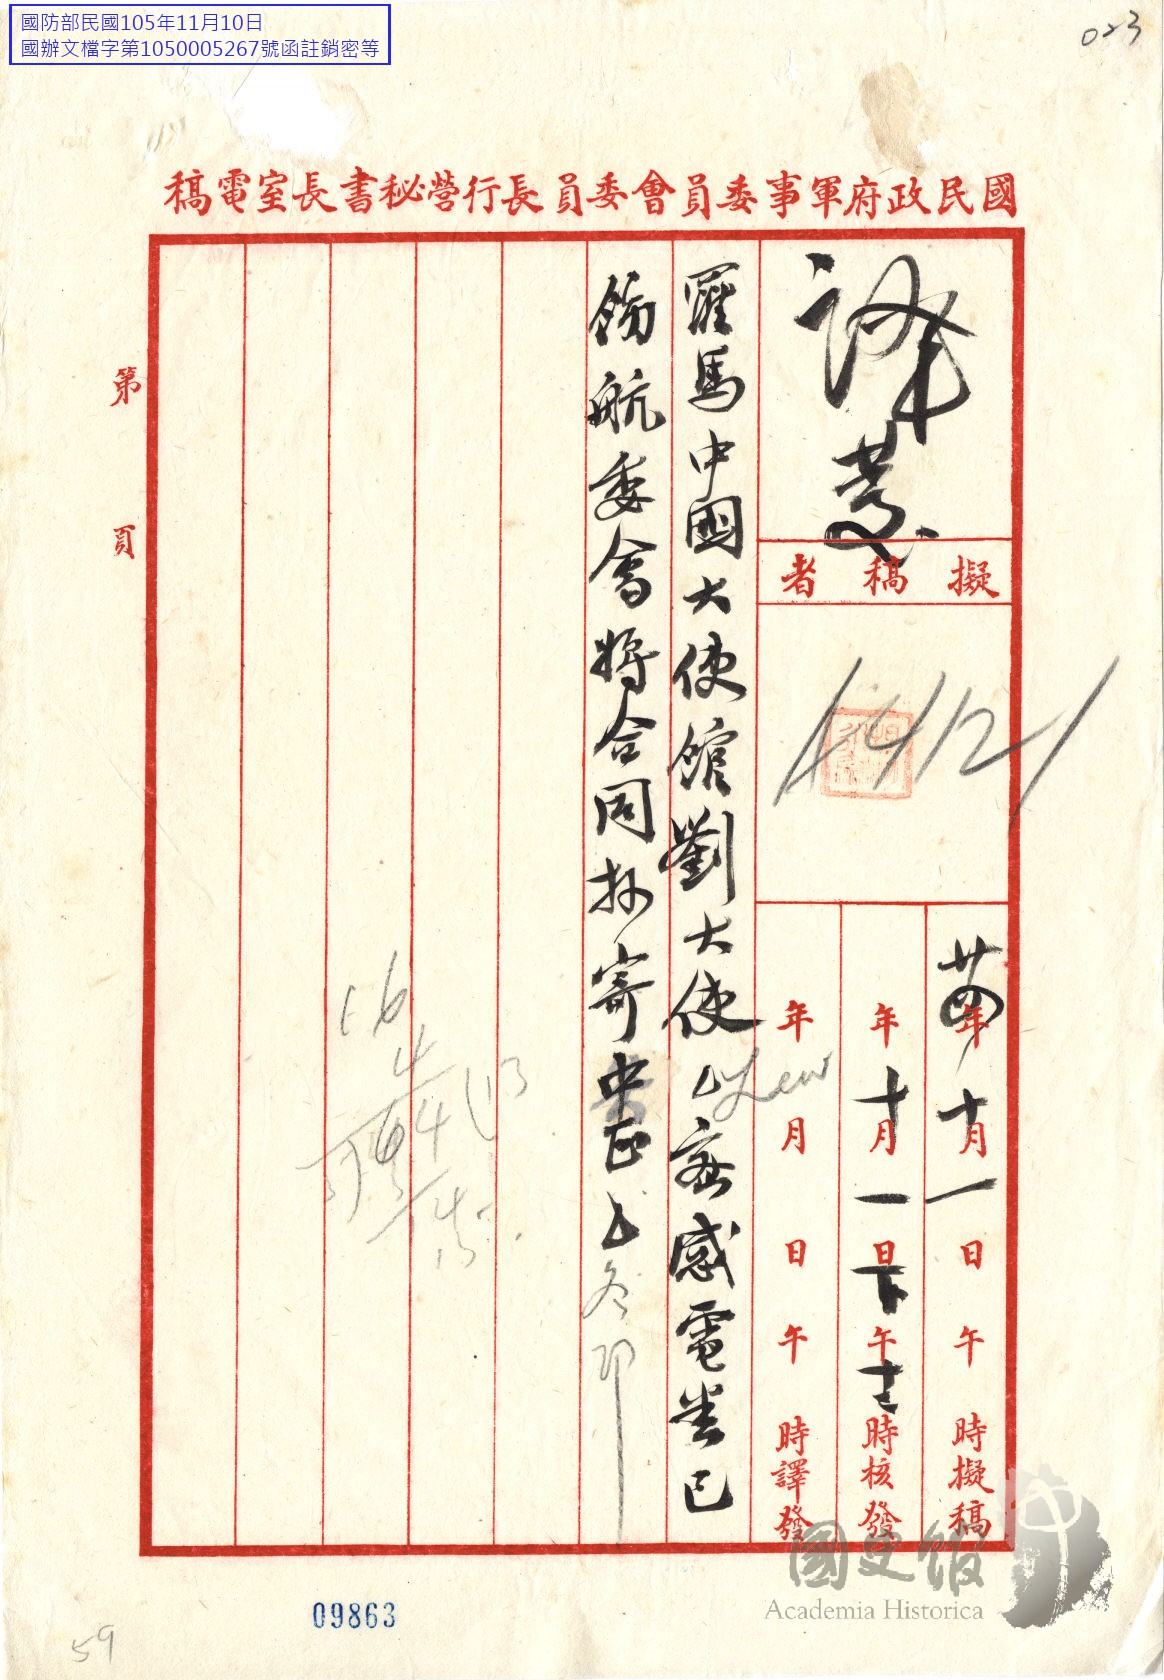 國防部民國105年11月10日
國辦文檔字第1050005267號函註銷密等
023
國民政府軍事委員會委員長行營秘書長室電稿
譯發
擬稿者
廿四年十月一日午時擬稿
年十月一日下午十二時核發
年月日午時譯發
羅馬中國大使館劉大使
Lew
密感電悉已
飭航委會將合同抄寄中正
冬印
第 頁
09863
59
國史館
Academia Historica